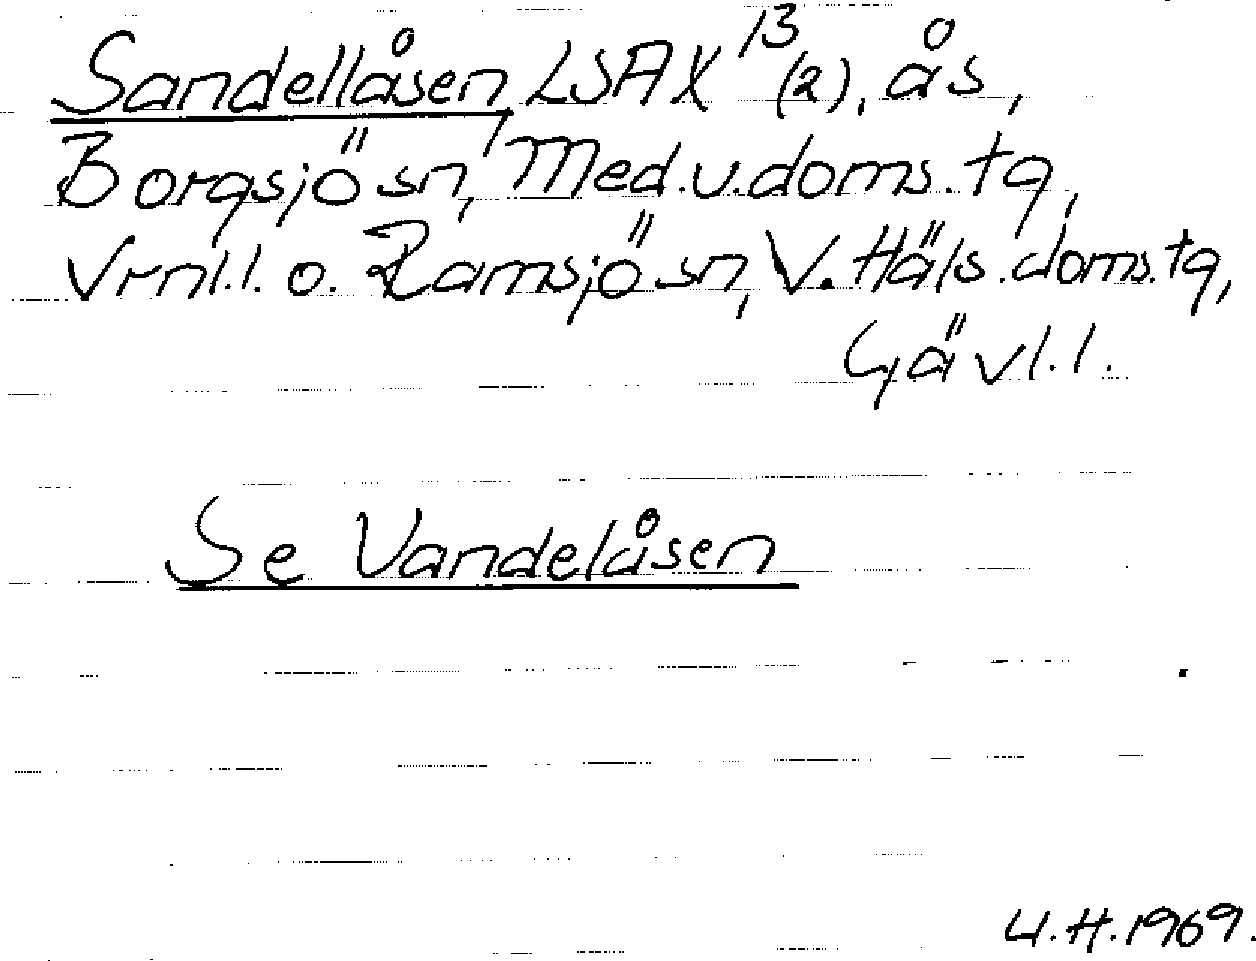 Sandellåsen, LSA X 13 (2), ås,
Borgsjö sn, Med.v.doms.tg,
Vrnl.l. o. Ramsjö sn, V. Häls.doms.tg,
Gävl.l.
Se Vandelåsen
U.H.1969.